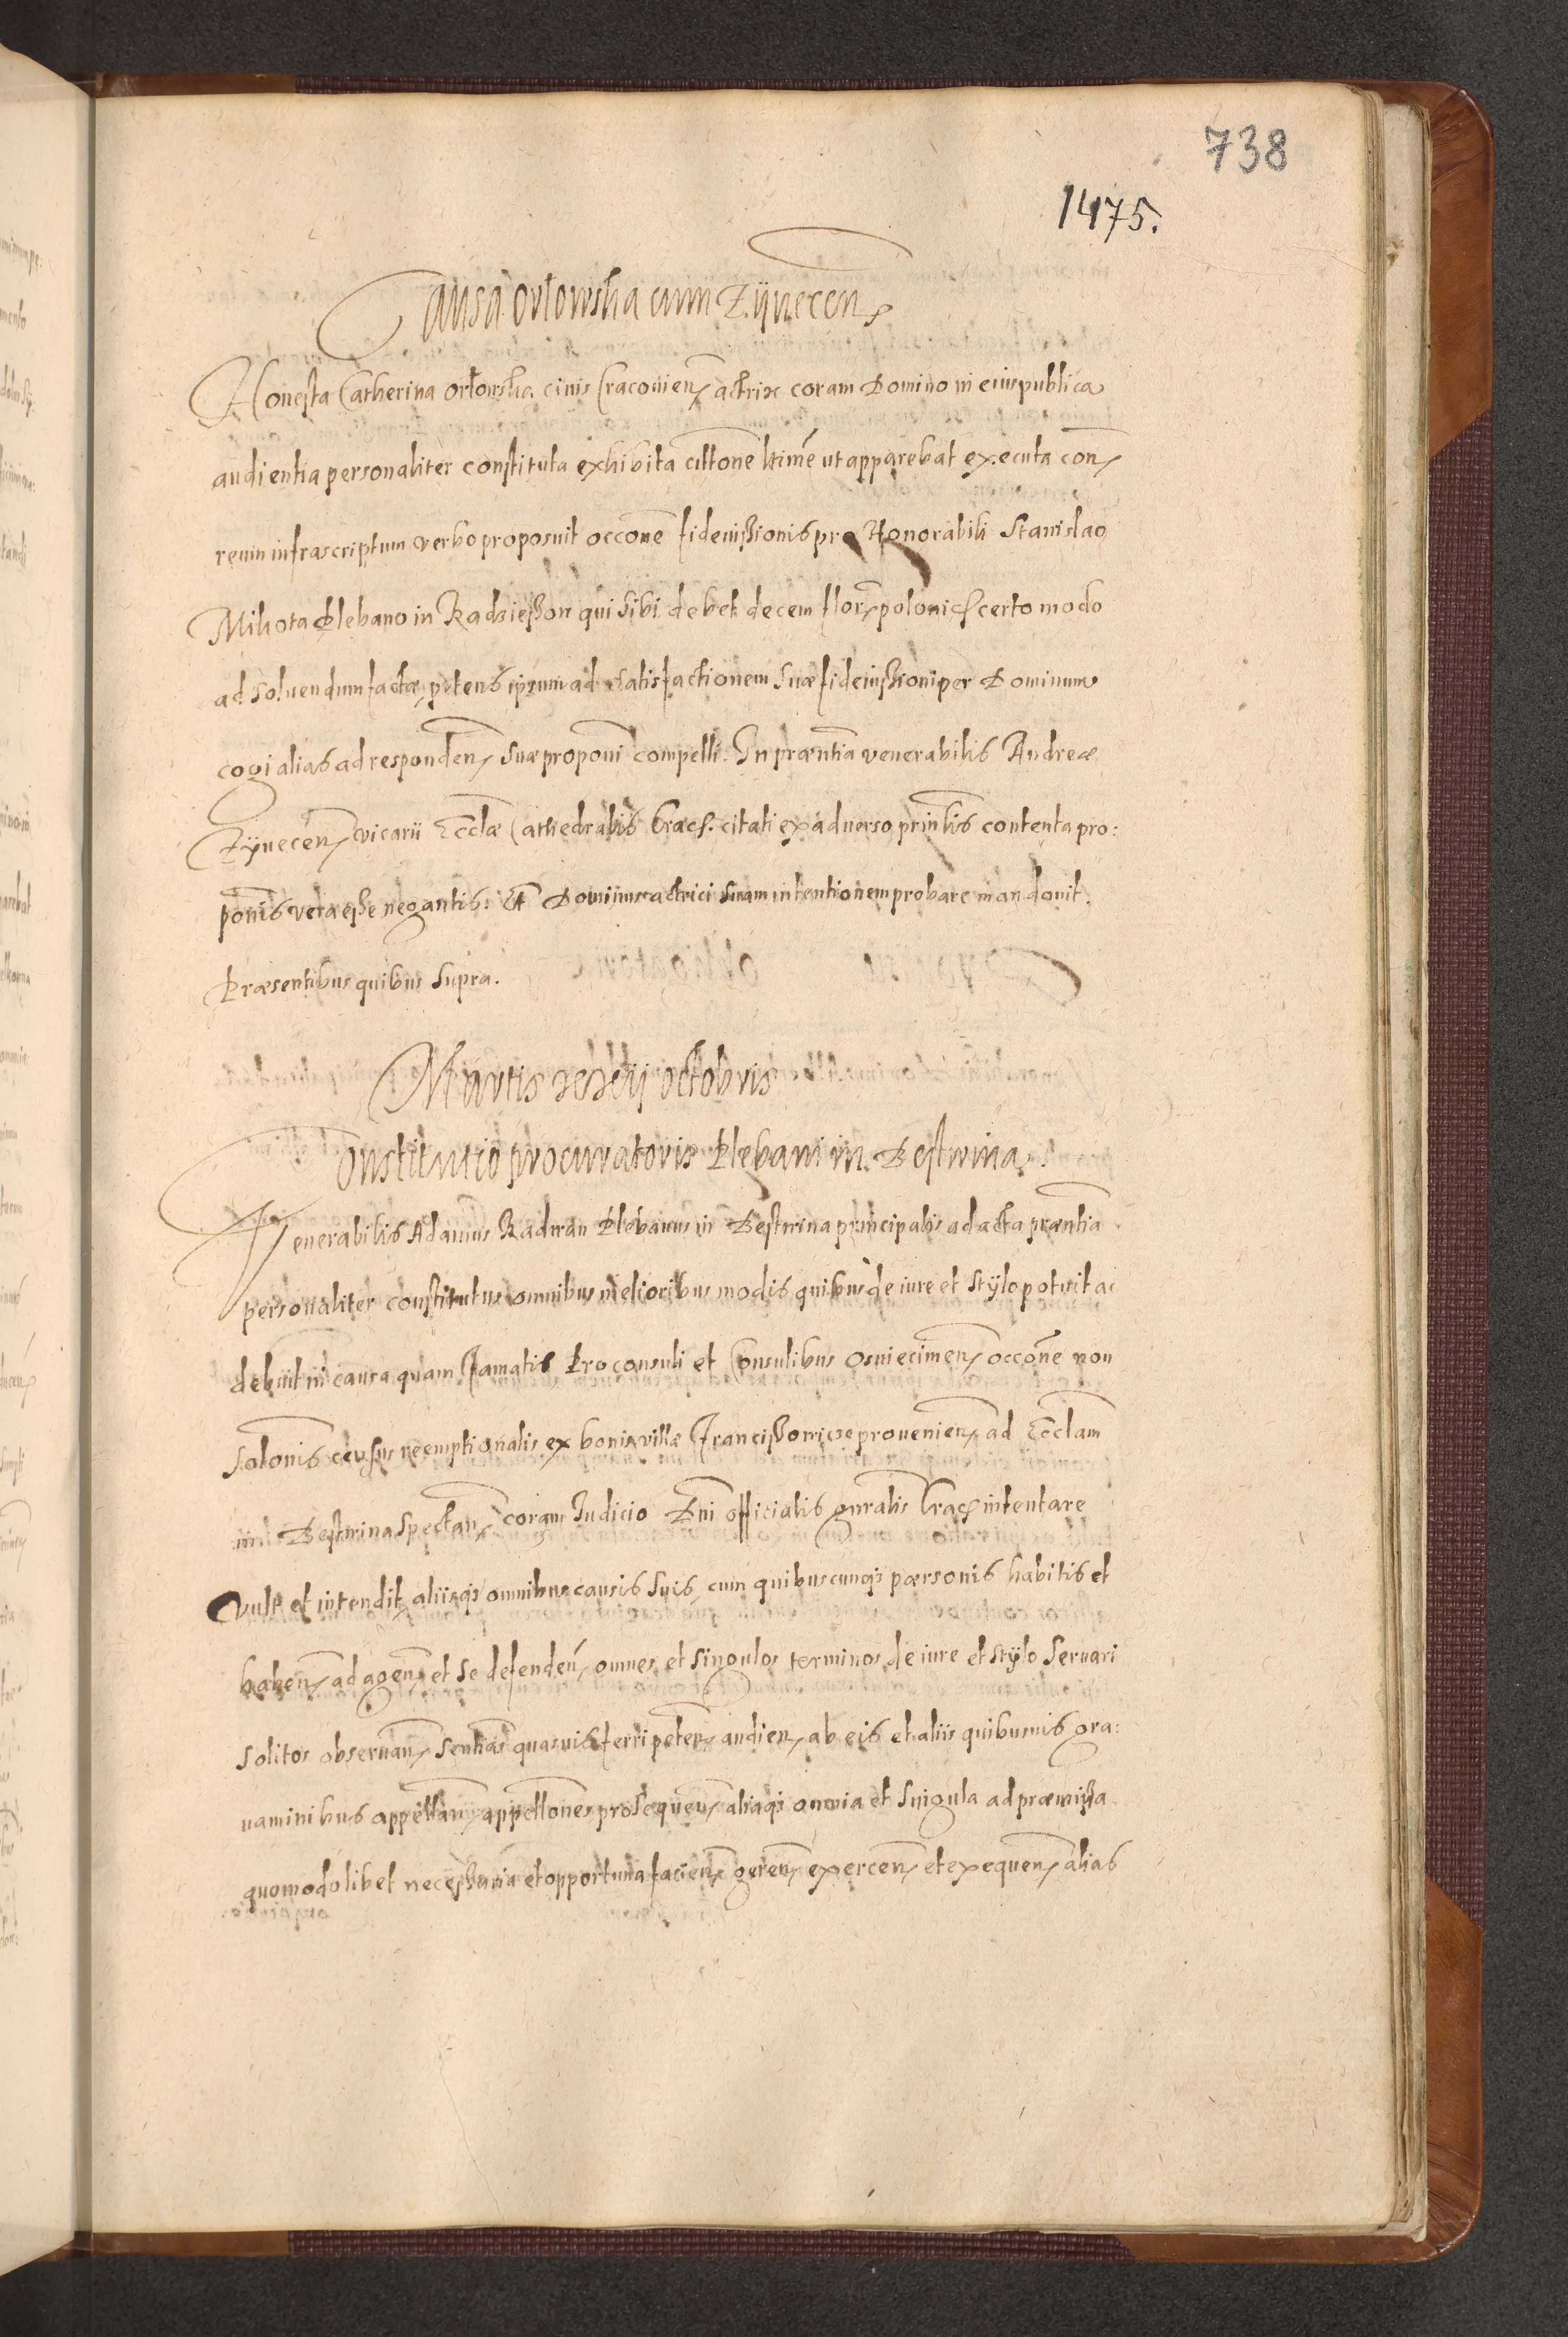 738
1475.
Causa Orłowska cum Zÿwecen
Honesta Catherina Orłowska civis Cracovien actrix coram Domino in eius publica
audientia personaliter constituta exhibita cittone ltime ut apparebat executa con
reum infrascriptum verbo proposuit occone fideiussionis pro Honorabili Stanislao
Mikota Plebano in Radzieszon qui sibi debet decem flor polonic certo modo
ad solvendum factæ, petens ipsum ad satisfactionem suæ fideiussioni per Dominum
cogi alias ad responden suæ proponi compelli. In præntia venerabilis Andreæ
Zÿwecen vicarii Ecclæ Cathedralis Crac. citati ex adverso printis contenta pro:
ponis vera esse negantis: Et Dominus actrici suam intentionem probare mandavit.
Præsentibus quibus supra.
Martis xxiij octobris
Constitutio procuratoris Plebani in Bestwina.
Venerabilis Adamus Radwan Plebanus in Bestwina principalis ad acta præntia
personaliter constitutus omnibus melioribus modis quibus de iure et stÿlo potuit ac
debuit in causa quam Famatis Proconsuli et Consulibus Osviecimen occone non
solonis census reemptionalis ex bonis villæ Franciszowice provenien ad Ecclam
in Bestwina spectan coram Iudicio Dni officialis gnralis Crac intentare
vult et intendit, aliisqs omnibus causis suis, cum quibuscunqs pærsonis habitis et
haben, ad agen et se defenden, omnes et singulos terminos de iure et stÿlo servari
solitos observan, sentias quasvis ferri peten, audien, ab eis et aliis quibusvis gra:
vaminibus appellan, appellones prosequen, aliaqs omnia et singula ad præmissa
quomodolibet necessaria et opportuna facien, geren, exercen, et exequen, alias